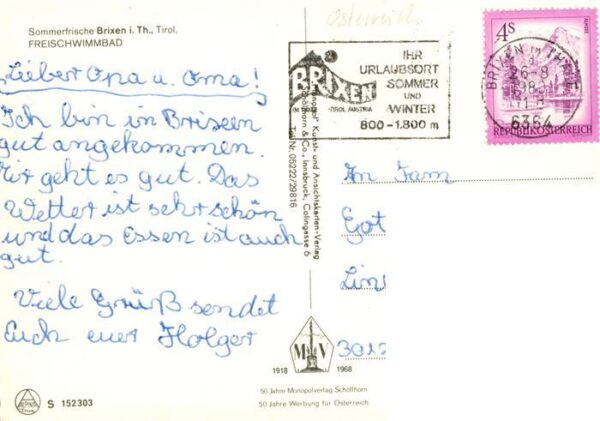 Sommerfrische Brixen i. Th., Tirol,
FREISCHWIMMBAD
Österreich
Lieber Opa u. Oma!
Ich bin in Brixen
gut angekommen.
Mir geht es gut. Das
Wetter ist sehr schön
und das Essen ist auch
gut.
Viele Grüß sendet
Euch euer Holger
S 152303
BRIXEN
IM THALE -TIROL AUSTRIA
IHR
URLAUBSORT
SOMMER
UND
WINTER
800-1.800 m
4S
REPUBLIK ÖSTERREICH
BRIXEN IM THALE
26-8
6364
Kunst- und Ansichtskarten-Verlag
Schöllhorn & Co., Innsbruck, Colingasse 6
Tel. Nr. 05222/29816
An Fam
Got
Lin
M V
1918 1968
50 Jahre Monopolverlag Schöllhorn
50 Jahre Werbung für Österreich